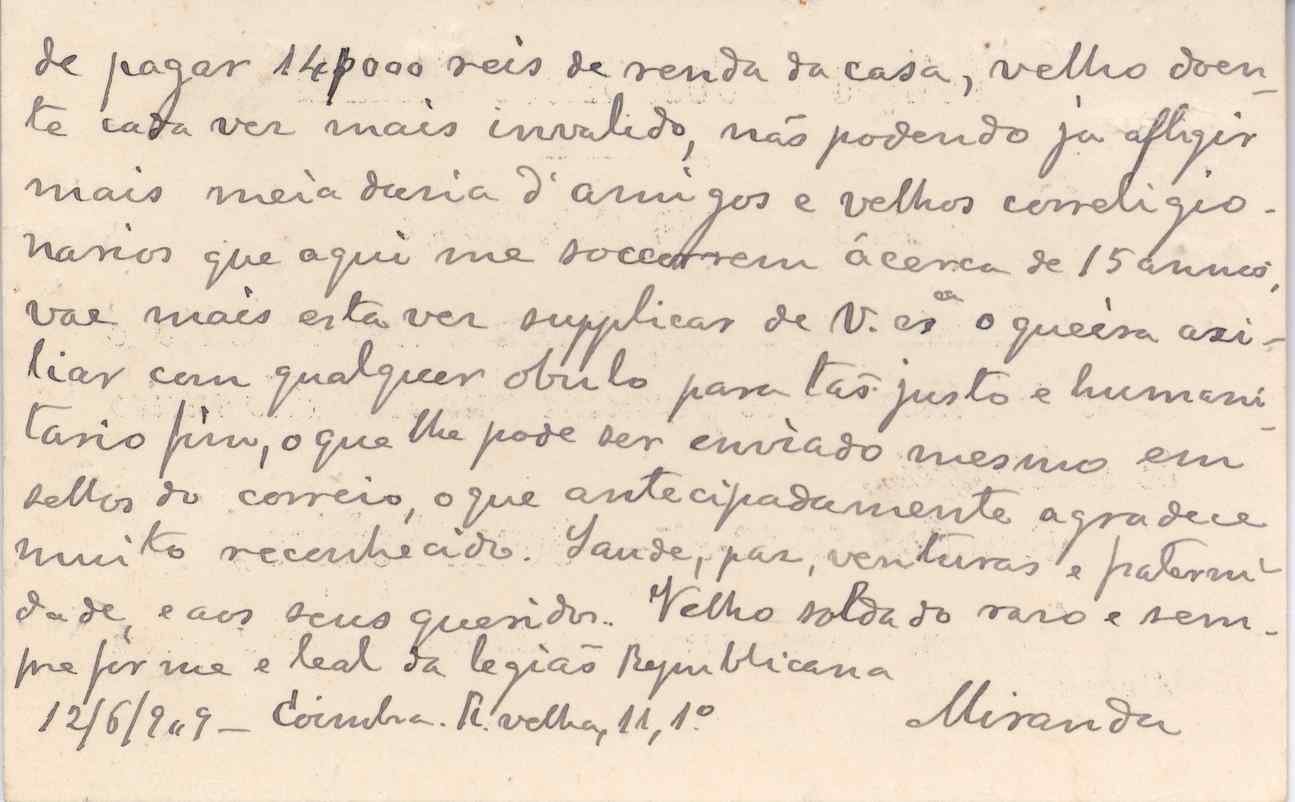 de pagar 14$000 reis de renda da casa, velho doen-
te cada vez mais invalido, não podendo já afligir
mais meia duzia d'amigos e velhos correligio-
narios que aqui me soccorrem ácerca de 15 annos,
vae mais esta vez supplicar de V. exª o queira axi-
liar com qualquer obulo para tão justo e humani-
tario fim, o que lhe pode ser enviado mesmo em
sellos do correio, o que antecipadamente agradece
muito reconhecido. Saude, paz, venturas e fraterni-
dade, e aos seus queridos. Velho soldado raso e sem-
pre firme e leal da legião Republicana
12/6/909 – Coimbra. R. velha, 11, 1º
Miranda